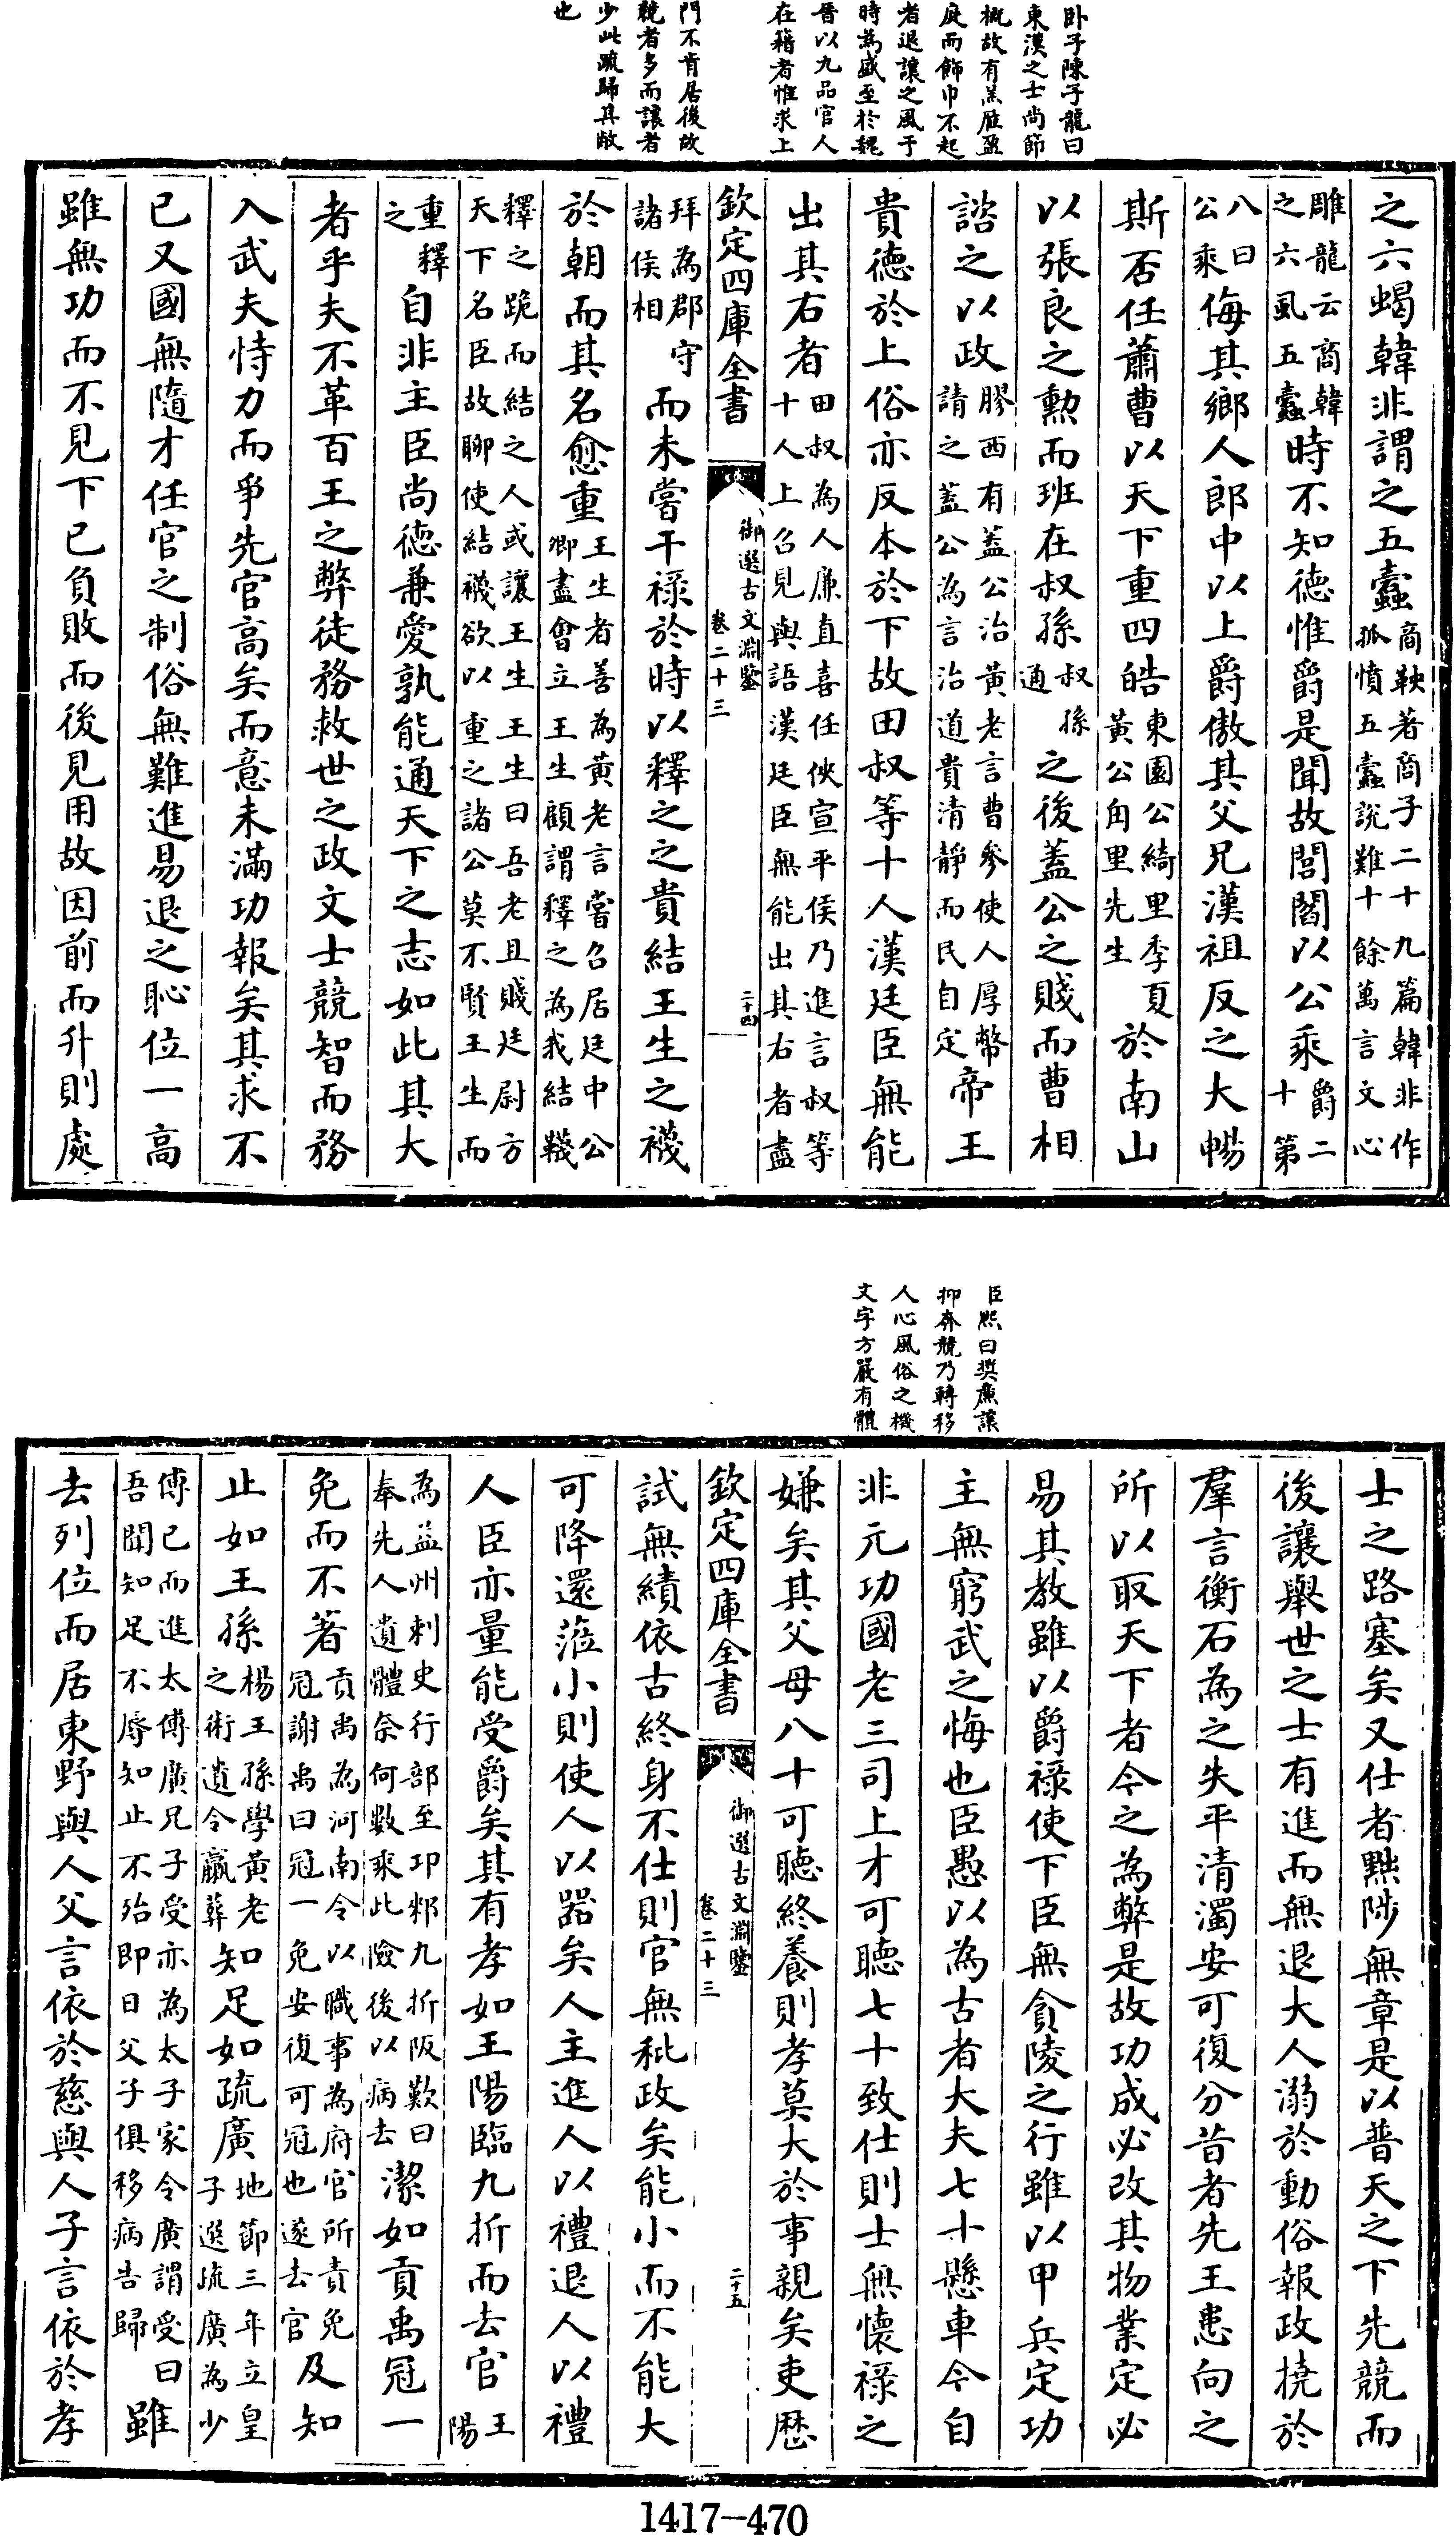 卧子陳子龍曰
東漢之士尚節
概故有羔雁盈
庭而飾巾不起
者退讓之風于
時為盛至於魏
晉以九品官人
在籍者惟求上
門不肯居後故
競者多而讓者
少此疏歸其敝
也
之六蝎韓非謂之五蠹商鞅著商子二十九篇韓非作孤憤五蠹說難十餘萬言文心
雕龍云商韓之六虱五蠹時不知德惟爵是聞故閭閻以公乘爵二十第
八曰公乘侮其鄉人郎中以上爵傲其父兄漢祖反之大暢
斯否任蕭曹以天下重四皓東園公綺里季夏黃公角里先生於南山
以張良之勲而班在叔孫叔孫通之後蓋公之賤而曹相
諮之以政膠西有蓋公治黃老言曹參使人厚幣請之蓋公為言治道貴清靜而民自定帝王
貴德於上俗亦反本於下故田叔等十人漢廷臣無能
出其右者田叔為人廉直喜任俠宣平侯乃進言叔等十人上召見與語漢廷臣無能出其右者盡
欽定四庫全書
御選古文淵鑒
卷二十三
二十四
拜為郡守諸侯相而未嘗干祿於時以釋之之貴結王生之襪
於朝而其名愈重王生者善為黃老言嘗召居廷中公卿盡會立王生顧謂釋之為我結韤
釋之跪而結之人或讓王生王生曰吾老且賤廷尉方天下名臣故聊使結襪欲以重之諸公莫不賢王生而
重釋之自非主臣尚德兼愛孰能通天下之志如此其大
者乎夫不革百王之弊徒務救世之政文士競智而務
入武夫恃力而爭先官高矣而意未滿功報矣其求不
已又國無隨才任官之制俗無難進易退之恥位一高
雖無功而不見下已負敗而後見用故因前而升則處
臣熙曰奬廉讓
抑奔競乃轉移
人心風俗之機
文字方嚴有體
士之路塞矣又仕者黜陟無章是以普天之下先競而
後讓舉世之士有進而無退大人溺於動俗報政撓於
羣言衡石為之失平清濁安可復分昔者先王患向之
所以取天下者今之為弊是故功成必改其物業定必
易其教雖以爵祿使下臣無貪陵之行雖以甲兵定功
主無窮武之悔也臣愚以為古者大夫七十懸車今自
非元功國老三司上才可聽七十致仕則士無懷祿之
嫌矣其父母八十可聽終養則孝莫大於事親矣吏歷
欽定四庫全書
御選古文淵鑒
卷二十三
二十五
試無績依古終身不仕則官無秕政矣能小而不能大
可降還蒞小則使人以器矣人主進人以禮退人以禮
人臣亦量能受爵矣其有孝如王陽臨九折而去官王陽
為益州刺史行部至卭郲九折阪歎曰奉先人遺體奈何數乘此險後以病去潔如貢禹冠一
免而不著貢禹為河南令以職事為府官所責免冠謝禹曰冠一免安復可冠也遂去官及知
止如王孫楊王孫學黃老之術遺令臝葬知足如疏廣地節三年立皇子選疏廣為少
傅已而進太傅廣兄子受亦為太子家令廣謂受曰吾聞知足不辱知止不殆即日父子俱移病告歸雖
去列位而居東野與人父言依於慈與人子言依於孝
1417-470